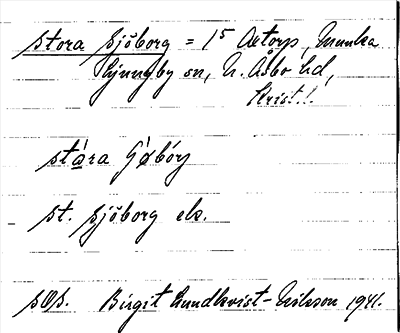 stora Sjöborg = 1⁵ Aetorp, Munka
Ljungby sn, N. Åsbo hd,
Krist. l.
stára
st. Sjöborg ek.
sOs. Birgit Lundkvist-Nilsson 1941.